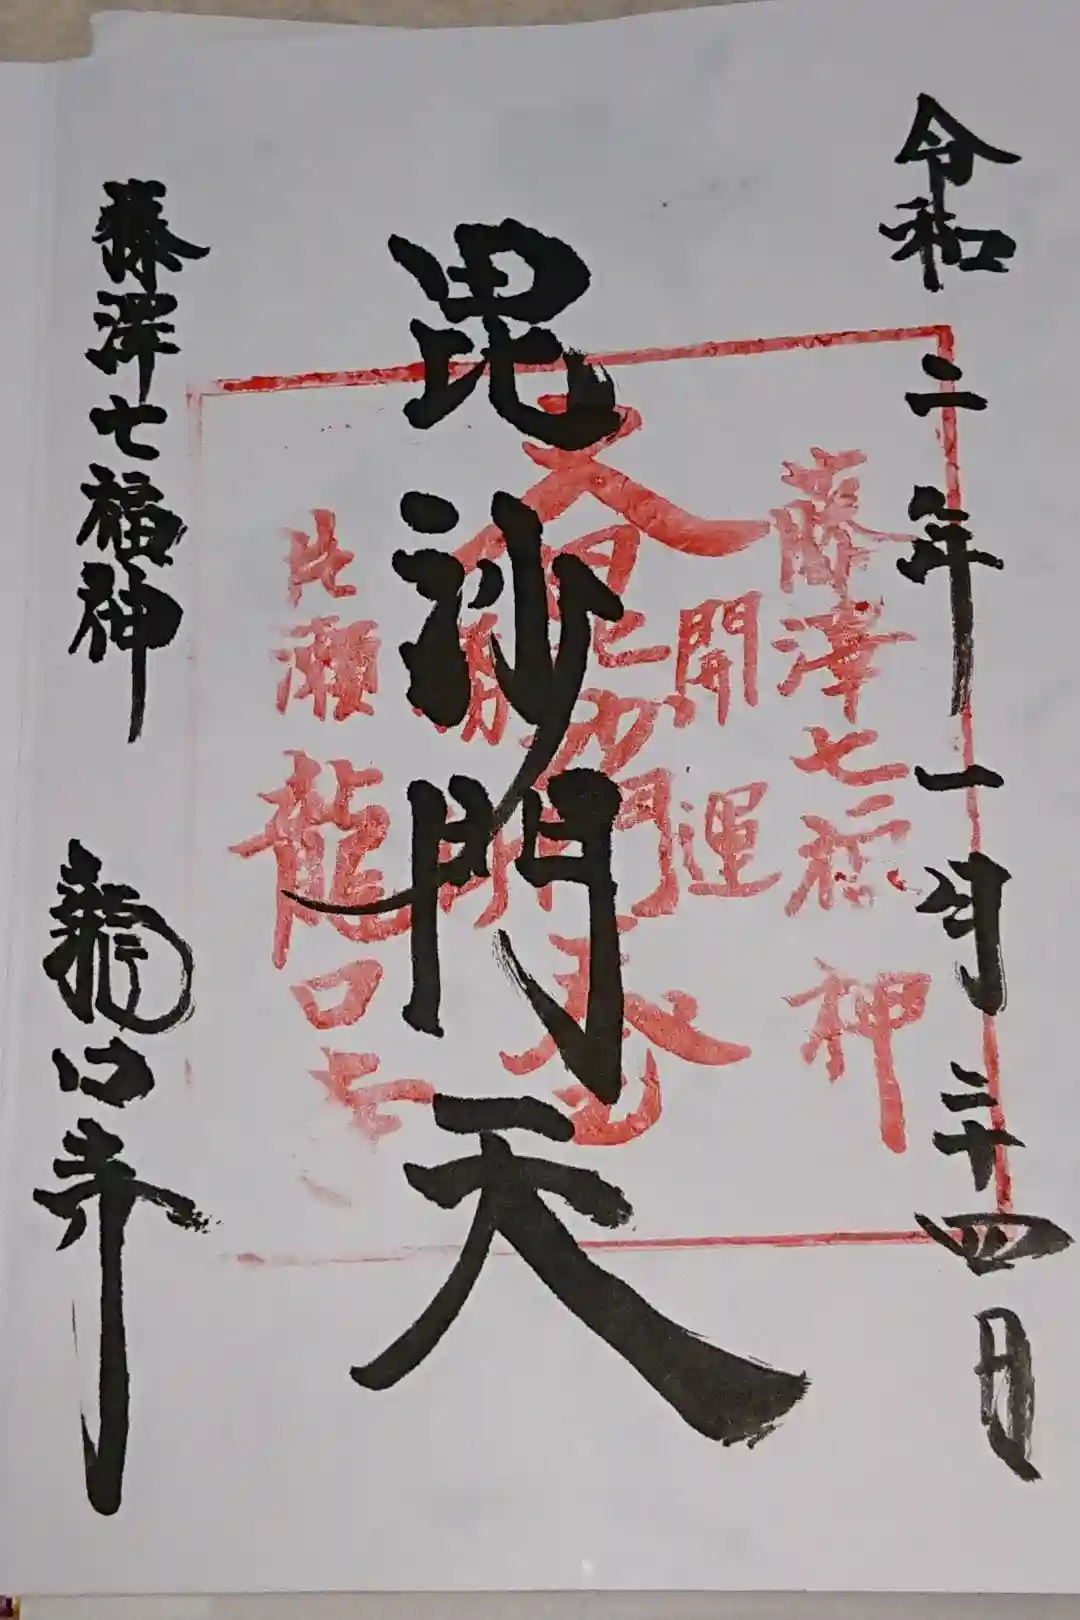 令和二年一月二十四日
毘沙門天
藤澤七福神 龍口寺
藤澤七福神
開運
大毘沙門天
片瀬 龍口寺